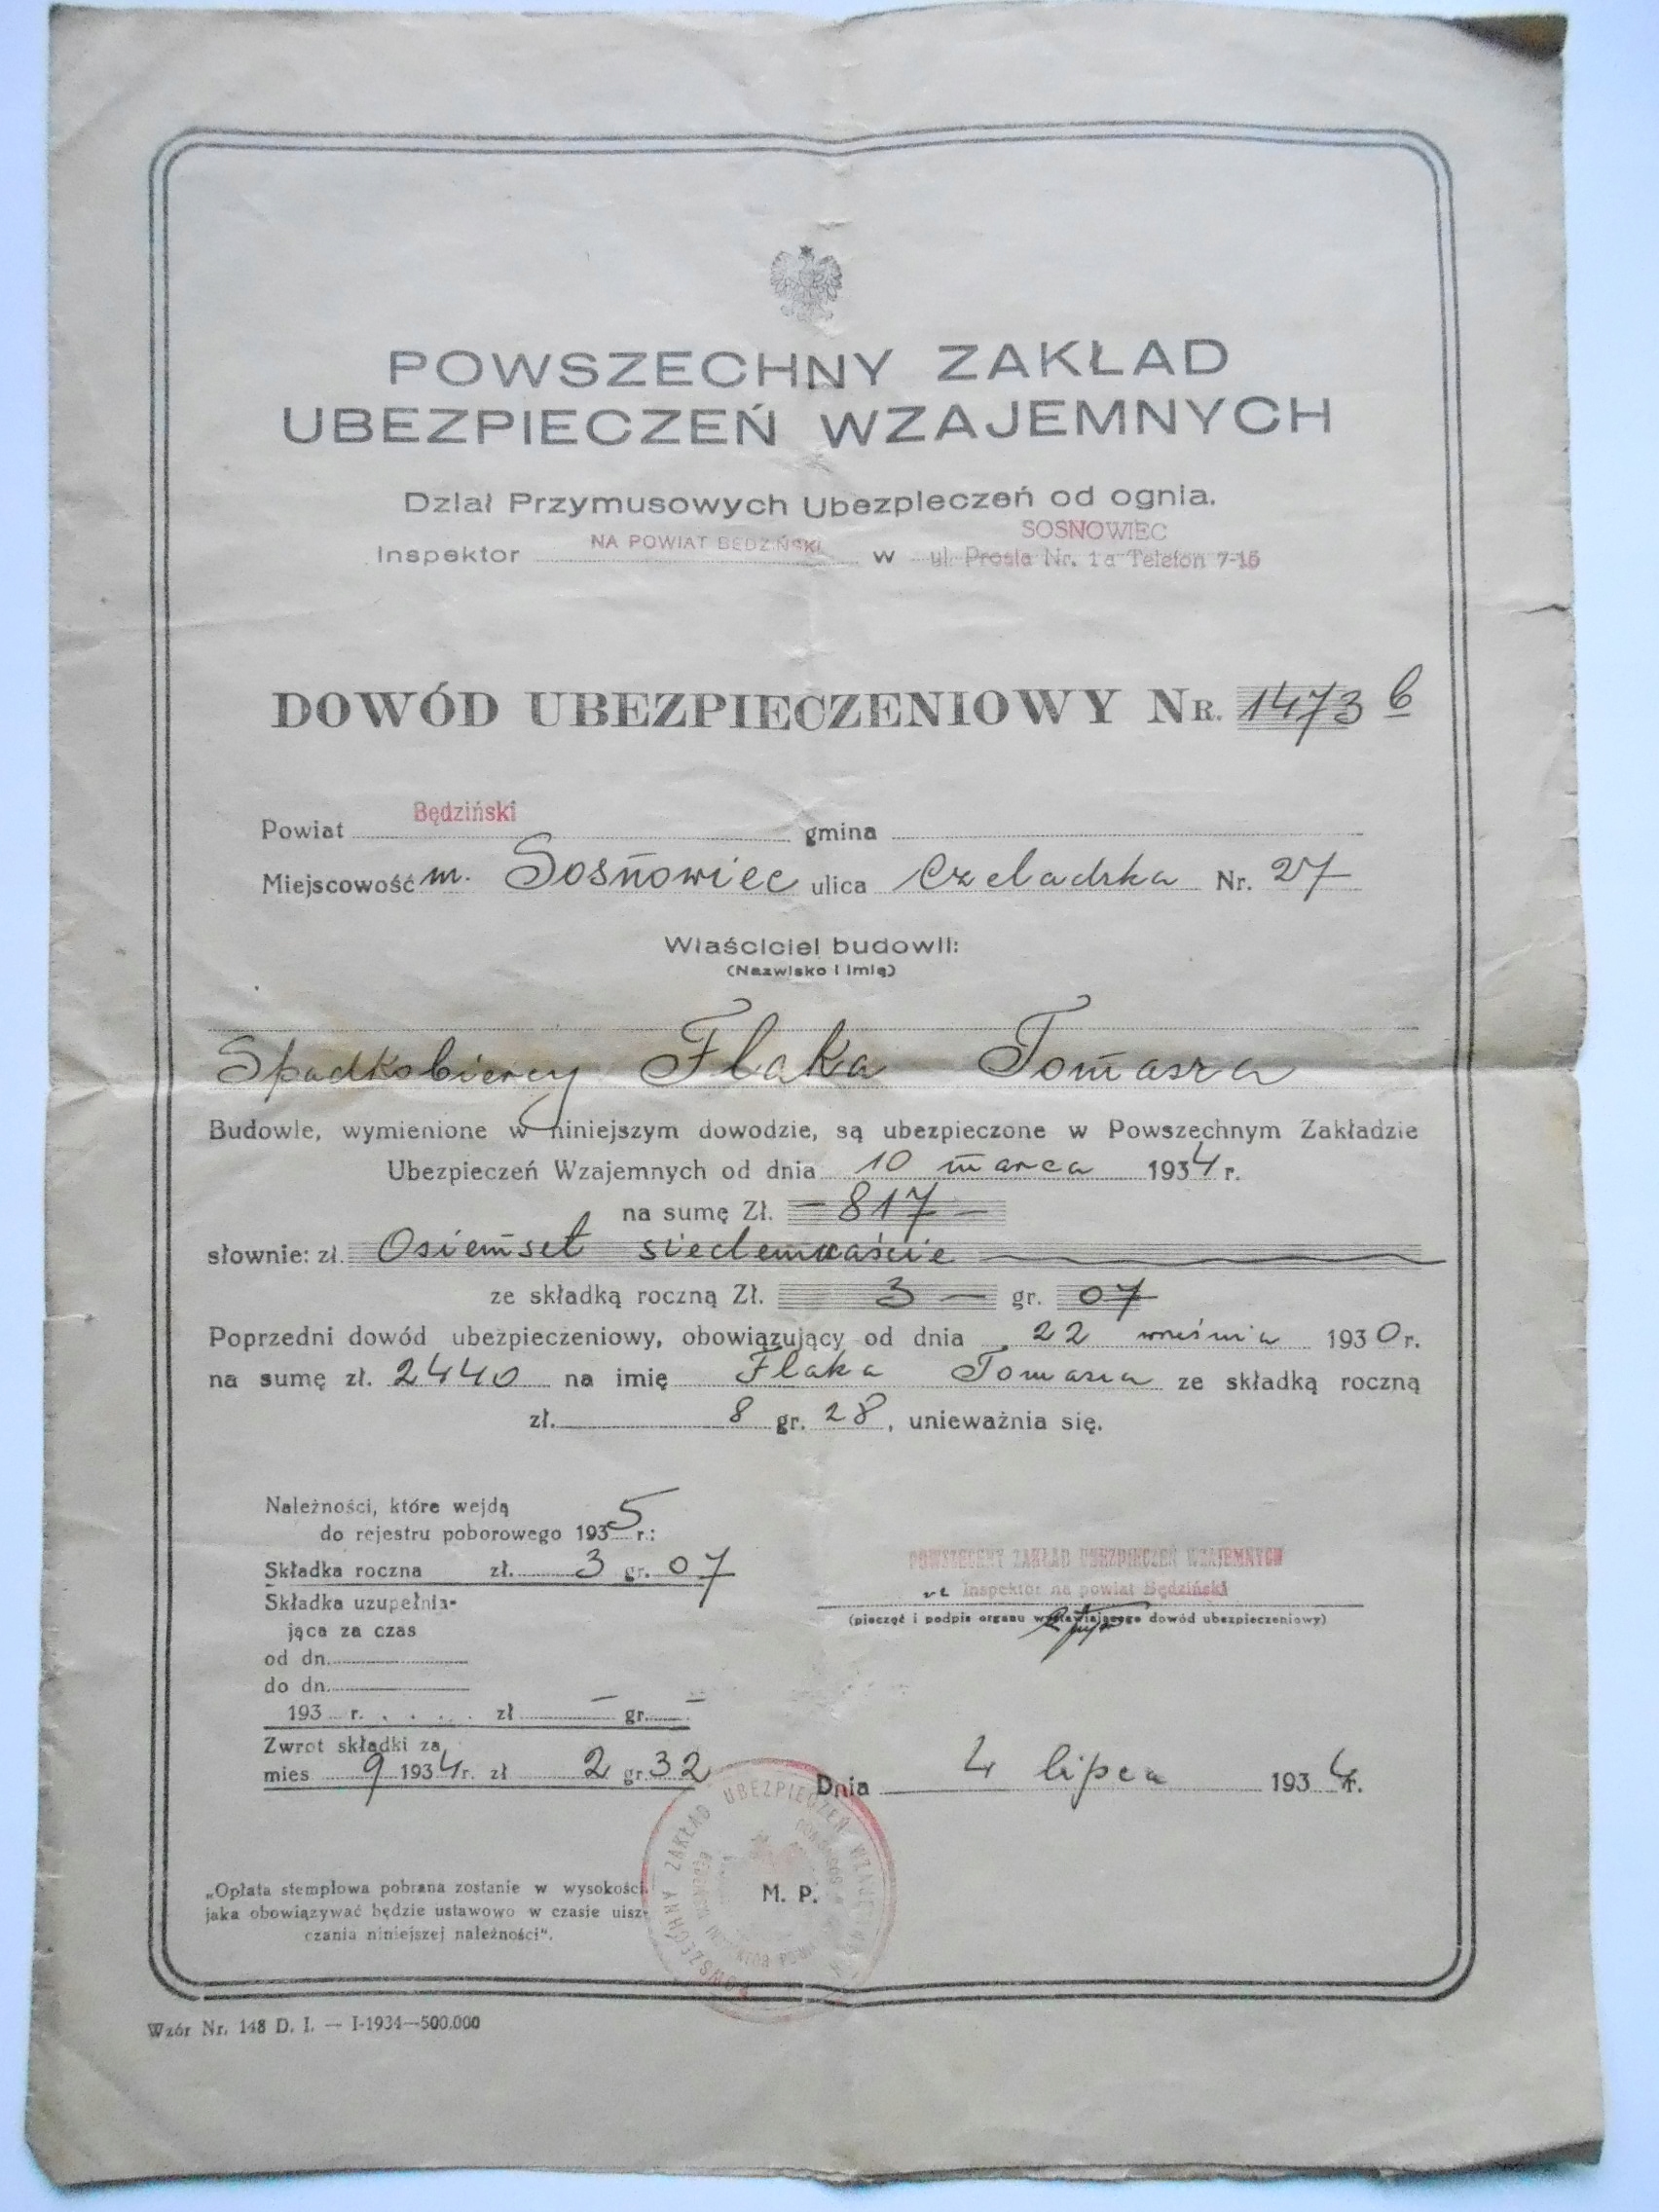 POWSZECHNY ZAKŁAD
UBEZPIECZEŃ WZAJEMNYCH
Dział Przymusowych Ubezpieczeń od ognia.
SOSNOWIEC
Inspektor NA POWIAT BĘDZIŃSKI w ul. Prosta Nr. 1a Telefon 7-15
DOWÓD UBEZPIECZENIOWY NR. 1473 b
Powiat Będziński gmina
Miejscowość m. Sosnowiec ulica Czeladzka Nr. 27
Właściciel budowli:
(Nazwisko i imię)
Spadkobiercy Flaka Tomasza
Budowle, wymienione w niniejszym dowodzie, są ubezpieczone w Powszechnym Zakładzie
Ubezpieczeń Wzajemnych od dnia 10 marca 1934 r.
na sumę Zł. — 817 —
słownie: zł. Osiemset siedemnaście
ze składką roczną Zł. 3 — gr. 07
Poprzedni dowód ubezpieczeniowy, obowiązujący od dnia 22 września 1930 r.
na sumę zł. 2440 na imię Flaka Tomasza ze składką roczną
zł. 8 gr. 28, unieważnia się.
Należności, które wejdą
do rejestru poborowego 1935 r.:
Składka roczna zł. 3 gr. 07
Składka uzupełnia-
jąca za czas
od dn.
do dn.
193 r. . . . . zł — gr. —
Zwrot składki za
mies 9 1934 r. zł 2 gr. 32
POWSZECHNY ZAKŁAD UBEZPIECZEŃ WZAJEMNYCH
Inspektor na powiat Będziński
(pieczęć i podpis organu wystawiającego dowód ubezpieczeniowy)
Dnia 4 lipca 1934 r.
POWSZECHNY ZAKŁAD UBEZPIECZEŃ WZAJEMNYCH
M. P.
„Opłata stemplowa pobrana zostanie w wysokości
jaka obowiązywać będzie ustawowo w czasie uisz-
czania niniejszej należności".
Wzór Nr. 148 D. I. — I-1934—500.000